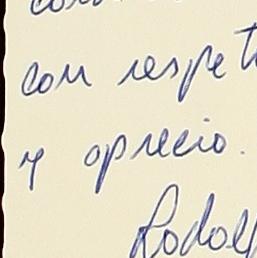 con respet
y aprecio.
Rodolf